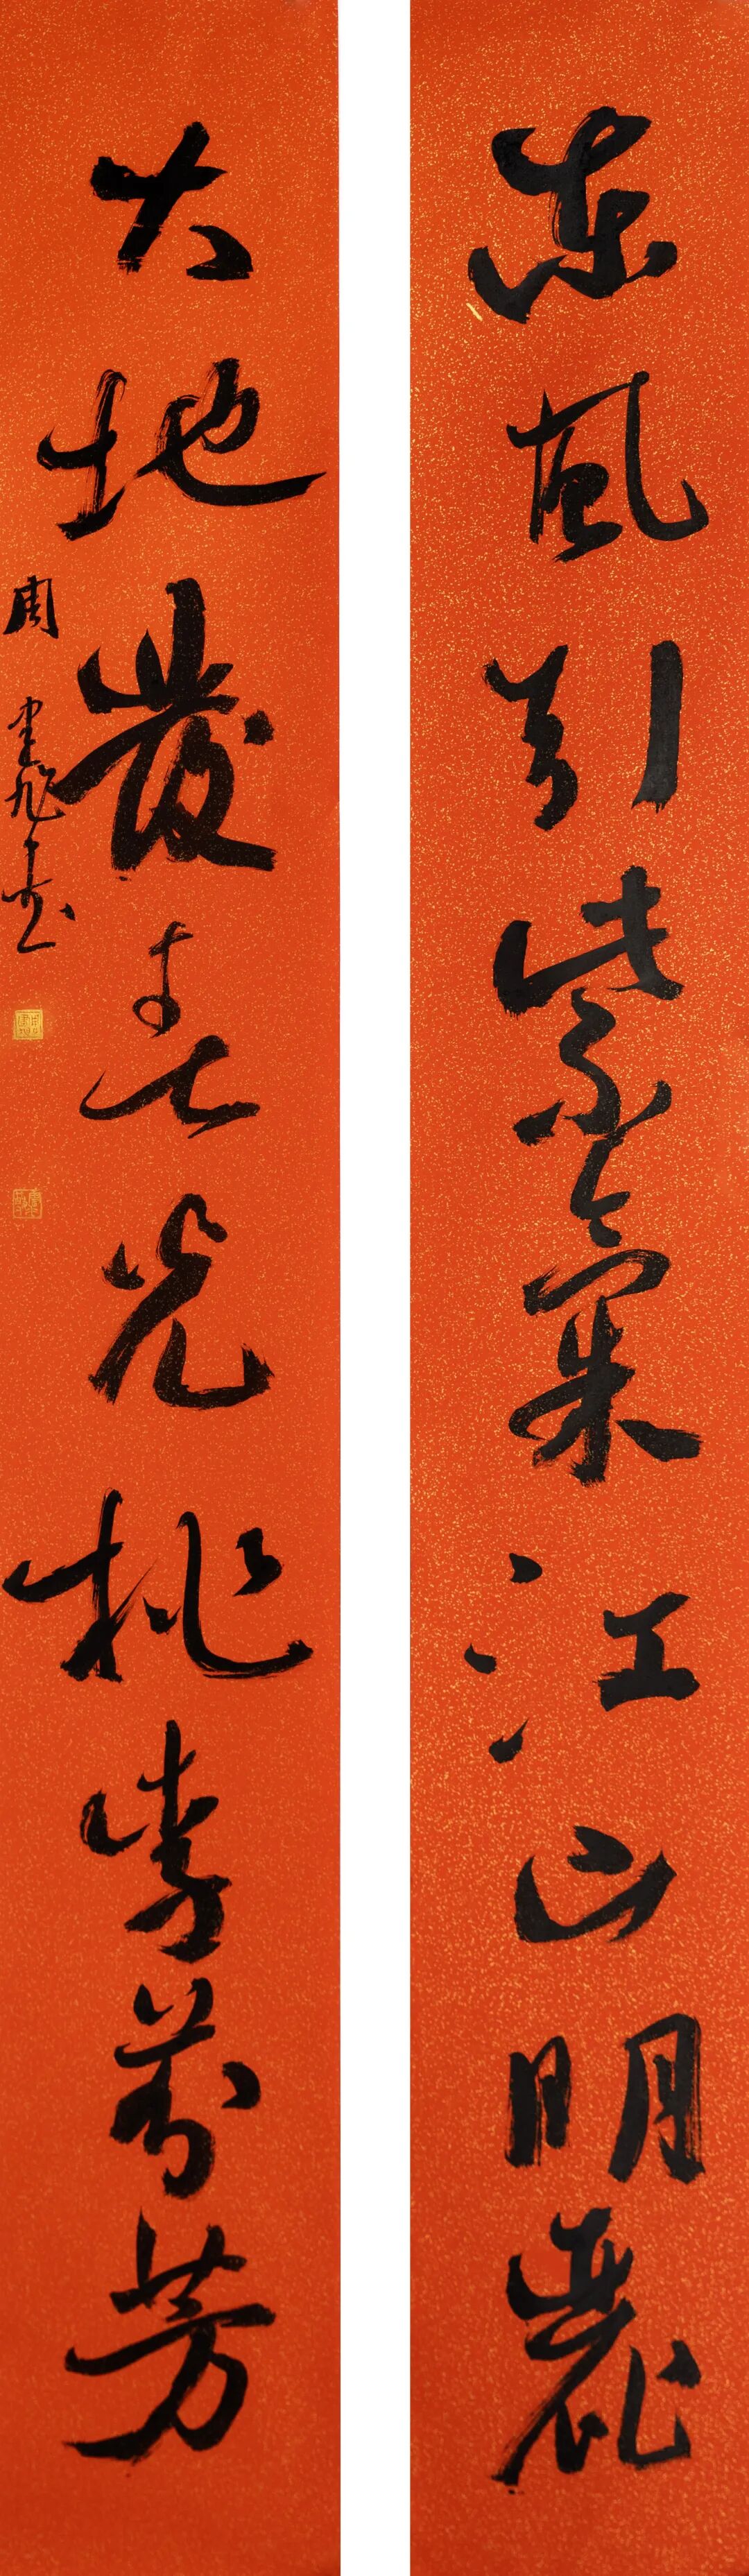 東風引紫氣江山明麗
大地發春光桃李芬芳
周建旭書